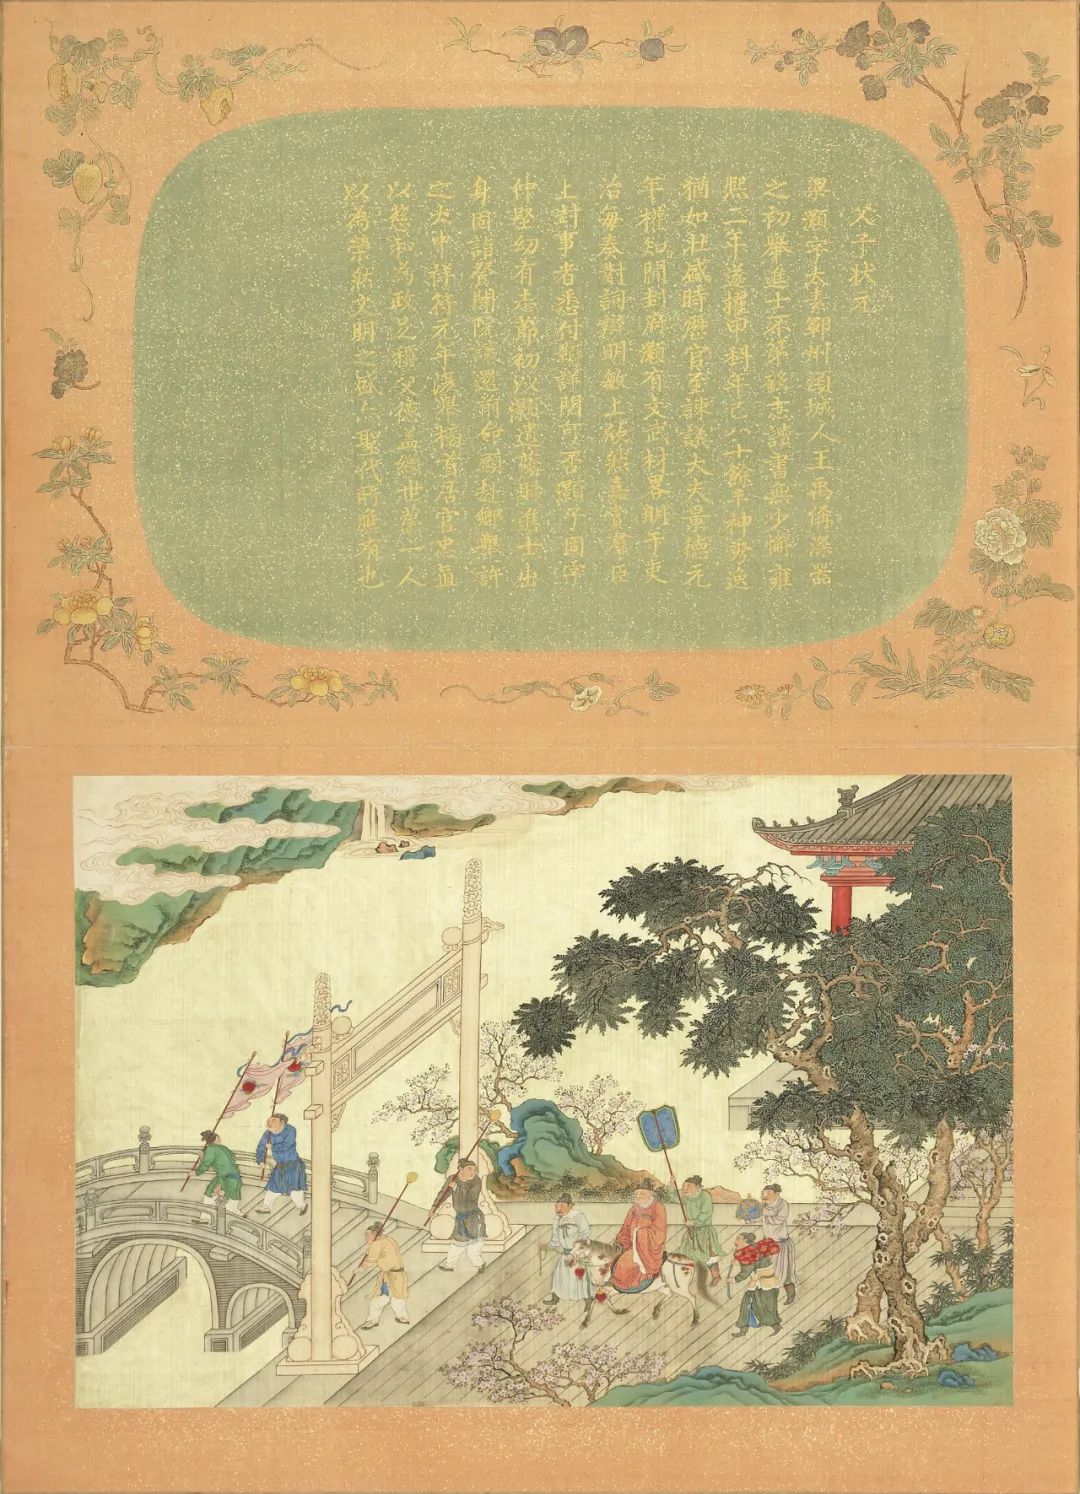 父子状元
梁灝字太素鄆州須城人王禹偁深器
之初舉進士不第發志讀書無少懈雍
熙二年遂擢甲科年已八十餘丰神秀逸
猶如壯盛時歷官至諫議大夫景德元
年權知開封府灝有文武材畧明于吏
治每奏對詞辯明敏上欣然嘉賞羣臣
上封事者悉付灝詳閱可否灝子固字
仲堅幼有志節初以灝遺蔭賜進士出
身固詣登聞院讓還前命願赴鄉舉許
之大中祥符元年復舉榜首居官忠直
以慈和為政足稱父德世一人
以為榮然文明之盛聖代所應有也